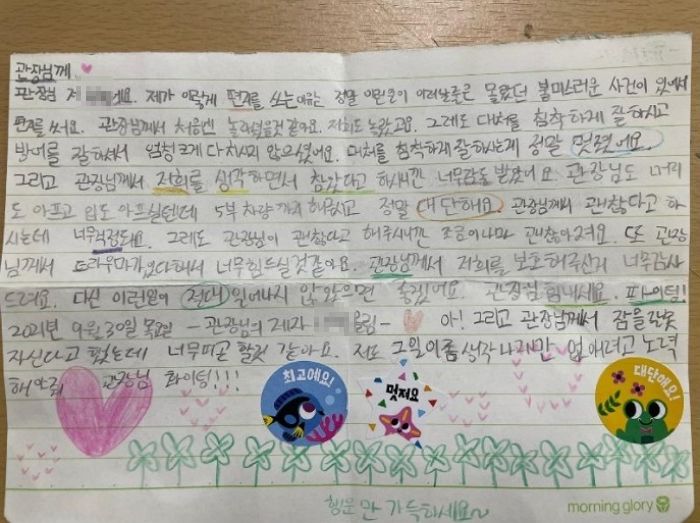 관장님께
관장님 저 에요. 제가 이렇게 편지를 쓰는 이유는 정말 이런일이 일어날줄은 몰랐던 불미스러운 사건이 있어서
편지를 써요. 관장님께서 처음엔 놀라셨을것 같아요. 저희도 놀랐고요. 그래도 대처를 침착하게 잘하시고
방어를 잘하셔서 엄청 크게 다치시지 않으셨어요. 대처를 침착하게 잘하시는게 정말 멋졌어요.
그리고 관장님께서 저희를 생각하면서 참았다고 하시니깐 너무 감동 받았어요 관장님도 머리
도 아프고 입도 아프실텐데 5부 차량 까지 해주시고 정말 대단해요. 관장님께서 괜찮다고 하
시는데 너무 걱정되요. 그래도 관장님이 괜찮다고 해주시니깐 조금이나마 괜찮아져요. 또 관장
님께서 트라우마가 있다해서 너무 힘드실것 같아요. 관장님께서 저희를 보호해주신거 너무 감사
드려요. 다신 이런일이 절대 일어나지 않았으면 좋겠어요. 관장님 힘내세요. 파이팅!
2021년 9월 30일 목요일 - 관장님의 제자 올림 - 아! 그리고 관장님께서 잠을 잘 못
자신다고 했는데 너무 피곤 할것 같아요. 저도 그일이 좀 생각 나지만 없애려고 노력
해야죠 관장님 화이팅!!!
최고예요!
멋져요
대단해요!
행운만 가득하세요~
morning glory